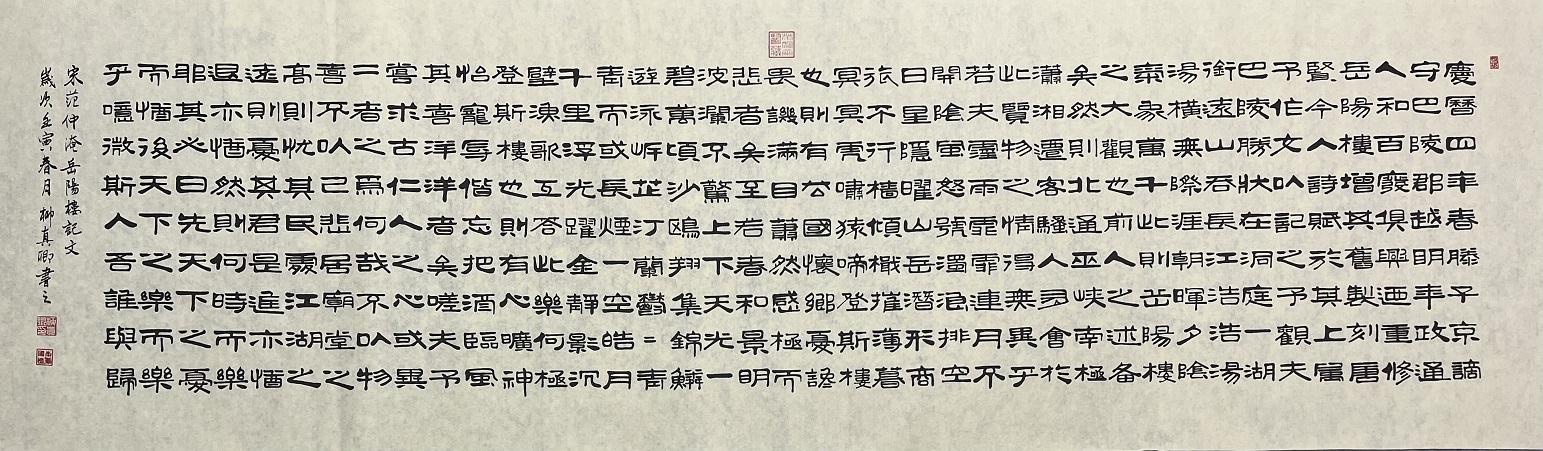 慶曆四年春滕子京謫
守巴陵郡越明年政通
人和百廢俱興迺重修
岳陽樓增其舊製刻唐
賢今人詩賦於其上屬
予作文以記之予觀夫
巴陵勝狀在洞庭一湖
銜遠山吞長江浩浩湯
湯橫無際涯朝暉夕陰
氣象萬千此則岳陽樓
之大觀也前人之述備
矣然則北通巫峽南極
瀟湘遷客騷人多會於
此覽物之情得無異乎
若夫霪雨霏霏連月不
開陰風怒號濁浪排空
日星隱曜山岳潛形商
旅不行檣傾楫摧薄暮
冥冥虎嘯猿啼登斯樓
也則有去國懷鄉憂讒
畏譏滿目蕭然感極而
悲者矣至若春和景明
波瀾不驚上下天光一
碧萬頃沙鷗翔集錦鱗
遊泳岸芷汀蘭鬱=青
青而或長煙一空皓月
千里浮光躍金靜影沉
壁漁歌互答此樂何極
登斯樓也則有心曠神
怡寵辱偕忘把酒臨風
其喜洋洋者矣嗟夫予
嘗求古仁人之心或異
二者之爲何哉不以物
喜不以己悲居廟堂之
高則憂其民處江湖之
遠則憂其君是進亦憂
退亦憂然則何時而樂
耶其必曰先天下之憂
而憂後天下之樂而樂
乎噫微斯人吾誰與歸
宋范仲淹岳陽樓記文
歲次壬寅春月柳真卿書之